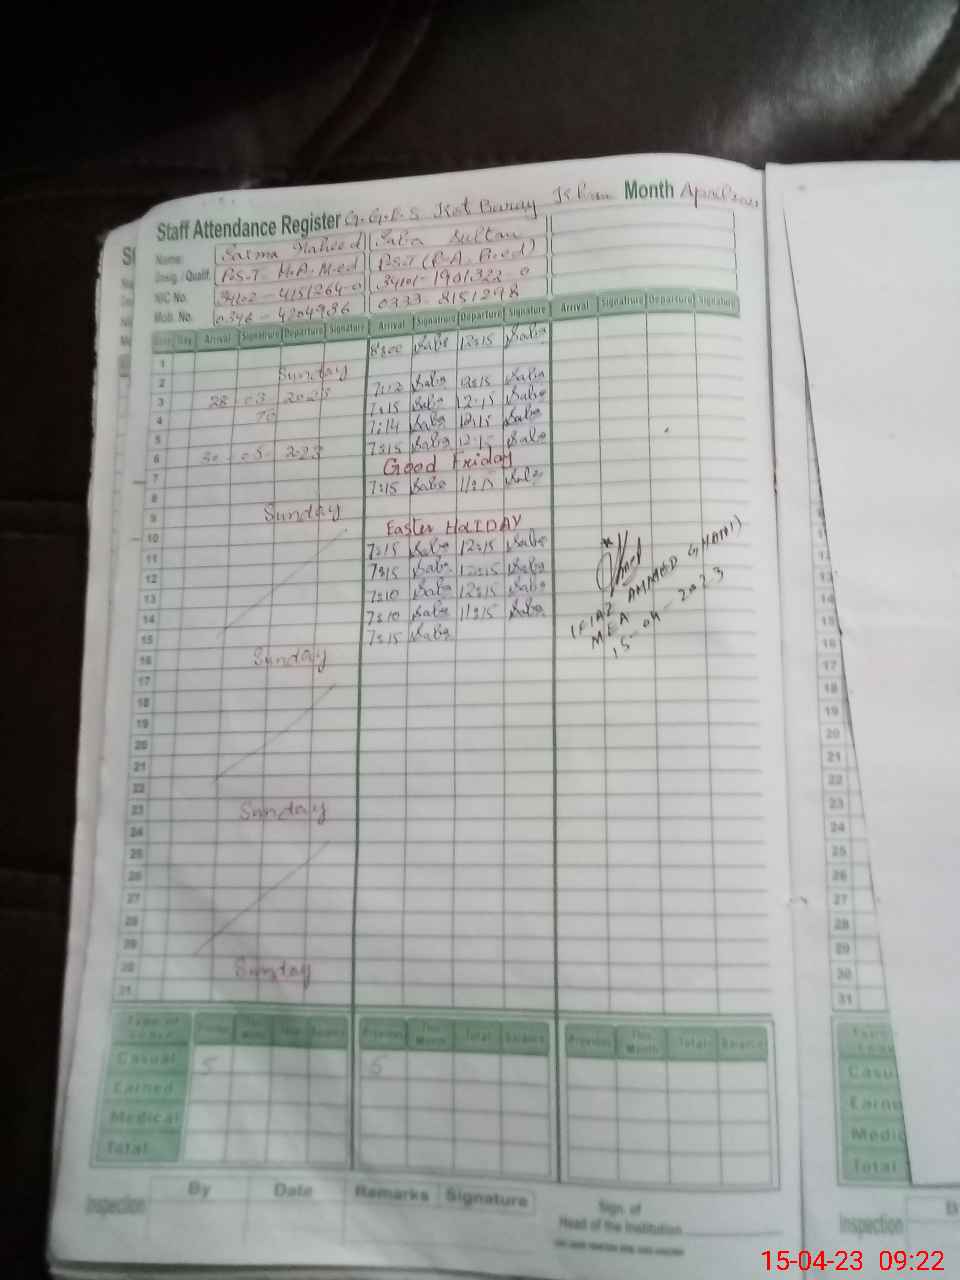 Staff Attendance Register G.G.E.S Kot Buray Khan Month April 2023
Name: Saima Naheed Saba Sultan
Desig. / Qualif. P.S.T M.A. M.ed P.S.T (B.A. B.ed)
NIC No. 34102-4151264-0 34101-1901322-0
Mob. No. 0346-4204936 0333-8151298
Date Day Arrival Signature Departure Signature Arrival Signature Departure Signature Arrival Signature Departure Signature
1 8:00 Saba 12:15 Saba
2 Sunday
3 28 03 2023 7:12 Saba 12:15 Saba
4 To 7:15 Saba 12:15 Saba
5 7:14 Saba 12:15 Saba
6 30-05-2023 7:15 Saba 12:15 Saba
7 Good Friday
8 7:15 Saba 11:15 Saba
9 Sunday
10 Easter HOLIDAY
11 7:15 Saba 12:15 Saba
12 7:15 Saba 12:15 Saba
13 7:10 Saba 12:15 Saba
14 7:10 Saba 11:15 Saba
15 7:15 Saba
(FIAZ AHMMED GHANI)
MEA
15-04-2023
16 Sunday
17
18
19
20
21
22
23 Sunday
24
25
26
27
28
29
30 Sunday
31
Type of Leave Previous This Month Total Balance Previous This Month Total Balance Previous This Month Total Balance
Casual 5 5
Earned
Medical
Total
Inspection By Date Remarks Signature
Sign. of
Head of the Institution
15-04-23 09:22